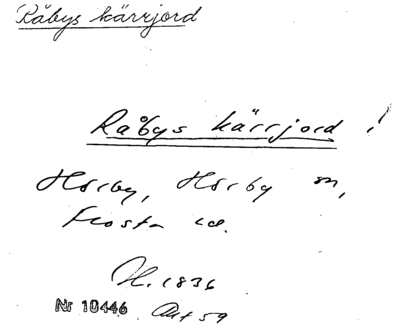 Råbys kärrjord
Råbys kärrjord!
Hörby, Hörby sn,
Frosta hd.
H. 1836
Nr 10446 Akt 59